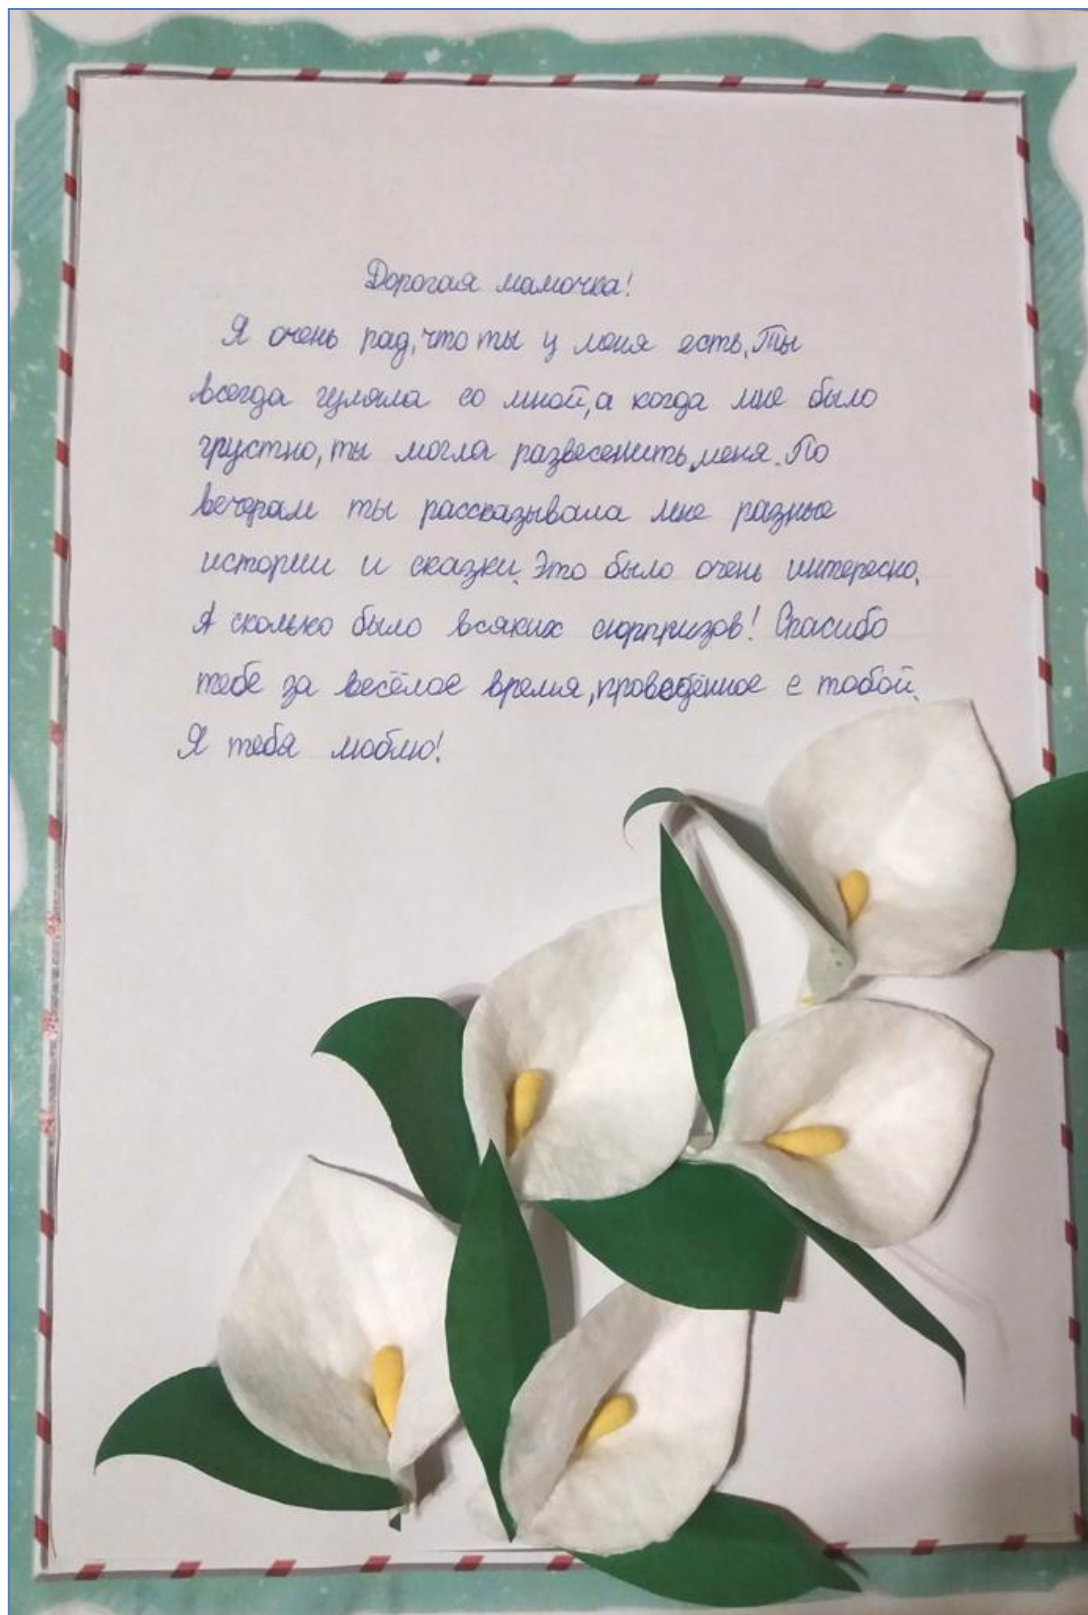 Дорогая мамочка!
Я очень рад, что ты у меня есть. Ты
всегда гуляла со мной, а когда мне было
грустно, ты могла развеселить меня. По
вечерам ты рассказывала мне разные
истории и сказки. Это было очень интересно.
А сколько было всяких сюрпризов! Спасибо
тебе за весёлое время, проведённое с тобой.
Я тебя люблю!